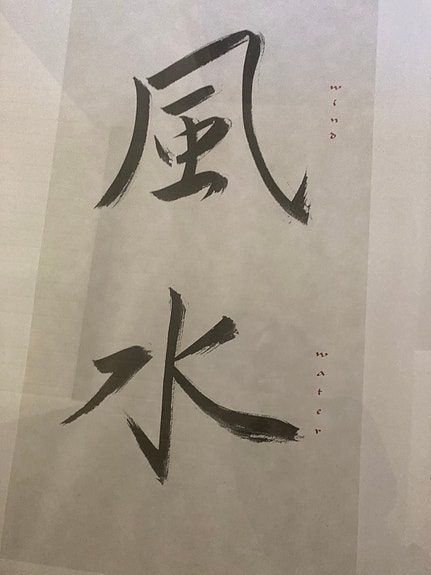 風
wind
水
water